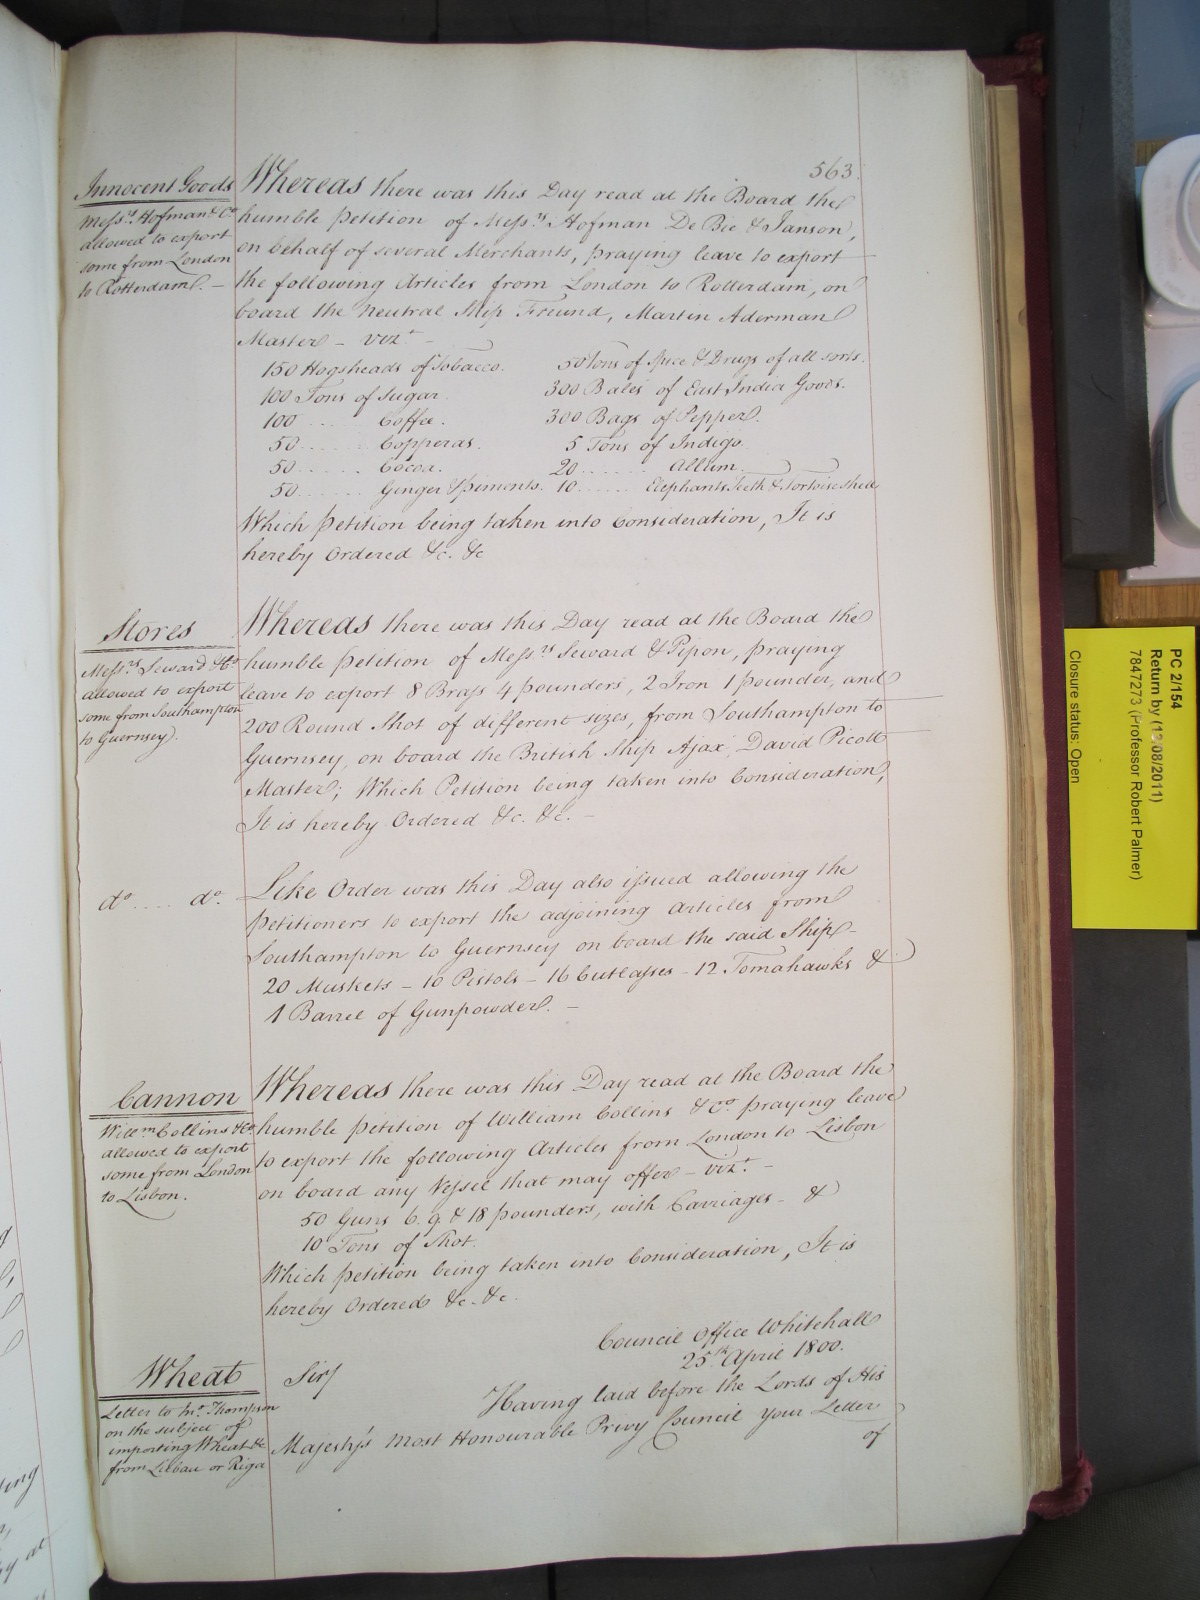 563.
Innocent Goods
Mess.rs Hofman & Co.
allowed to export
some from London
to Rotterdam. —
Whereas there was this Day read at the Board the
humble Petition of Mess.rs Hofman De Bie & Janson,
on behalf of several Merchants, praying leave to export
the following Articles from London to Rotterdam, on
board the Neutral Ship Freund, Martin Aderman
Master — vizt. —
150 Hogsheads of Tobacco. 50 Tons of Spice & Drugs of all sorts.
100 Tons of Sugar. 300 Bales of East India Goods.
100 .... Coffee. 300 Bags of Pepper.
50 ....... Copperas. 5 Tons of Indigo.
50 ...... Cocoa. 20 ....... Allum.
50 ....... Ginger & Piments. 10 ...... Elephants Teeth & Tortoise shell
Which Petition being taken into Consideration, It is
hereby Ordered &c. &c
Stores
Mess.rs Seward & Co.
allowed to export
some from Southampton
to Guernsey.
Whereas there was this Day read at the Board the
humble Petition of Mess.rs Seward & Pipon, praying
leave to export 8 Brass 4 pounders, 2 Iron 1 pounder, and
200 Round Shot of different sizes, from Southampton to
Guernsey, on board the British Ship Ajax, David Picott
Master; Which Petition being taken into Consideration,
It is hereby Ordered &c. &c. —
do. .... do.
Like Order was this Day also issued allowing the
Petitioners to export the adjoining Articles from
Southampton to Guernsey on board the said Ship —
20 Muskets — 10 Pistols — 16 Cutlasses — 12 Tomahawks &
1 Barrel of Gunpowder. —
Cannon
Will.m Collins & Co.
allowed to export
some from London
to Lisbon.
Whereas there was this Day read at the Board the
humble Petition of William Collins & Co. praying leave
to export the following Articles from London to Lisbon
on board any Vessel that may offer — vizt. —
50 Guns 6. 9. & 18 pounders, with Carriages — &
10 Tons of Shot.
Which Petition being taken into Consideration, It is
hereby Ordered &c. &c.
Council Office Whitehall
25th April 1800.
Wheat
Letter to Mr. Thompson
on the subject of
importing Wheat &c
from Libau or Riga
Sir/
Having laid before the Lords of His
Majesty's Most Honourable Privy Council Your Letter
of
PC 2/154
Return by (12/08/2011)
7847273 (Professor Robert Palmer)
Closure status: Open